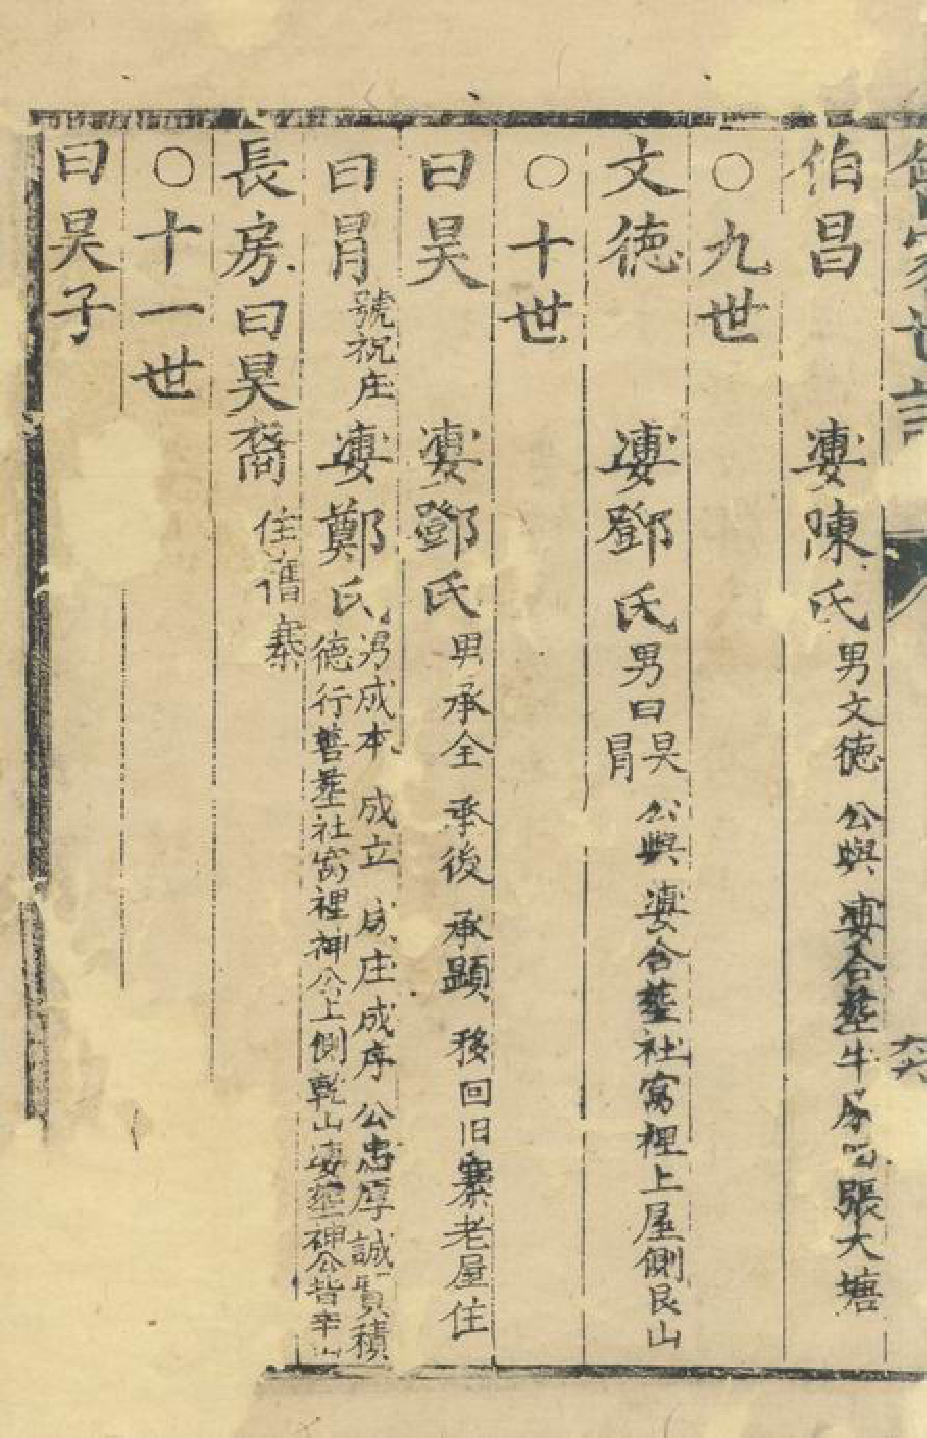 伯昌 婁陳氏 男文德 公與婁合塟牛 張大塘
○九世
文德 婁鄧氏 男曰昊 冐 公與婁合塟社窩裡上屋側艮山
○十世
曰昊 婁鄧氏 男承全 承後 承顕 移回旧寨老屋住
曰冐 號祝庄 婁鄭氏 男成本 成立 成庄 成序 公忠厚誠實積德行善塟社窩裡神公上側乾山婁塟神公背辛山
長房曰昊裔 住舊寨
○十一世
曰昊子